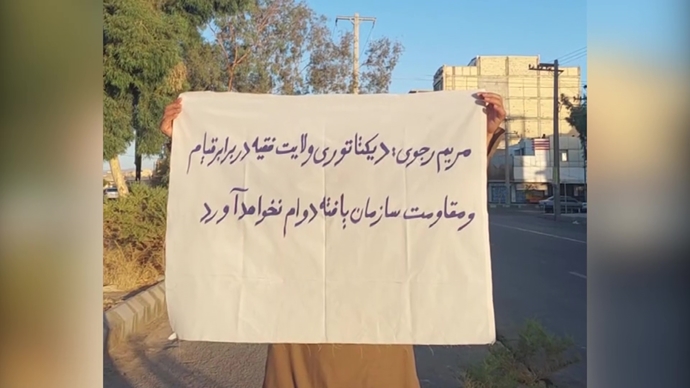 مریم رجوی: دیکتاتوری ولایت فقیه در برابر قیام
و مقاومت سازمان یافته دوام نخواهد آورد